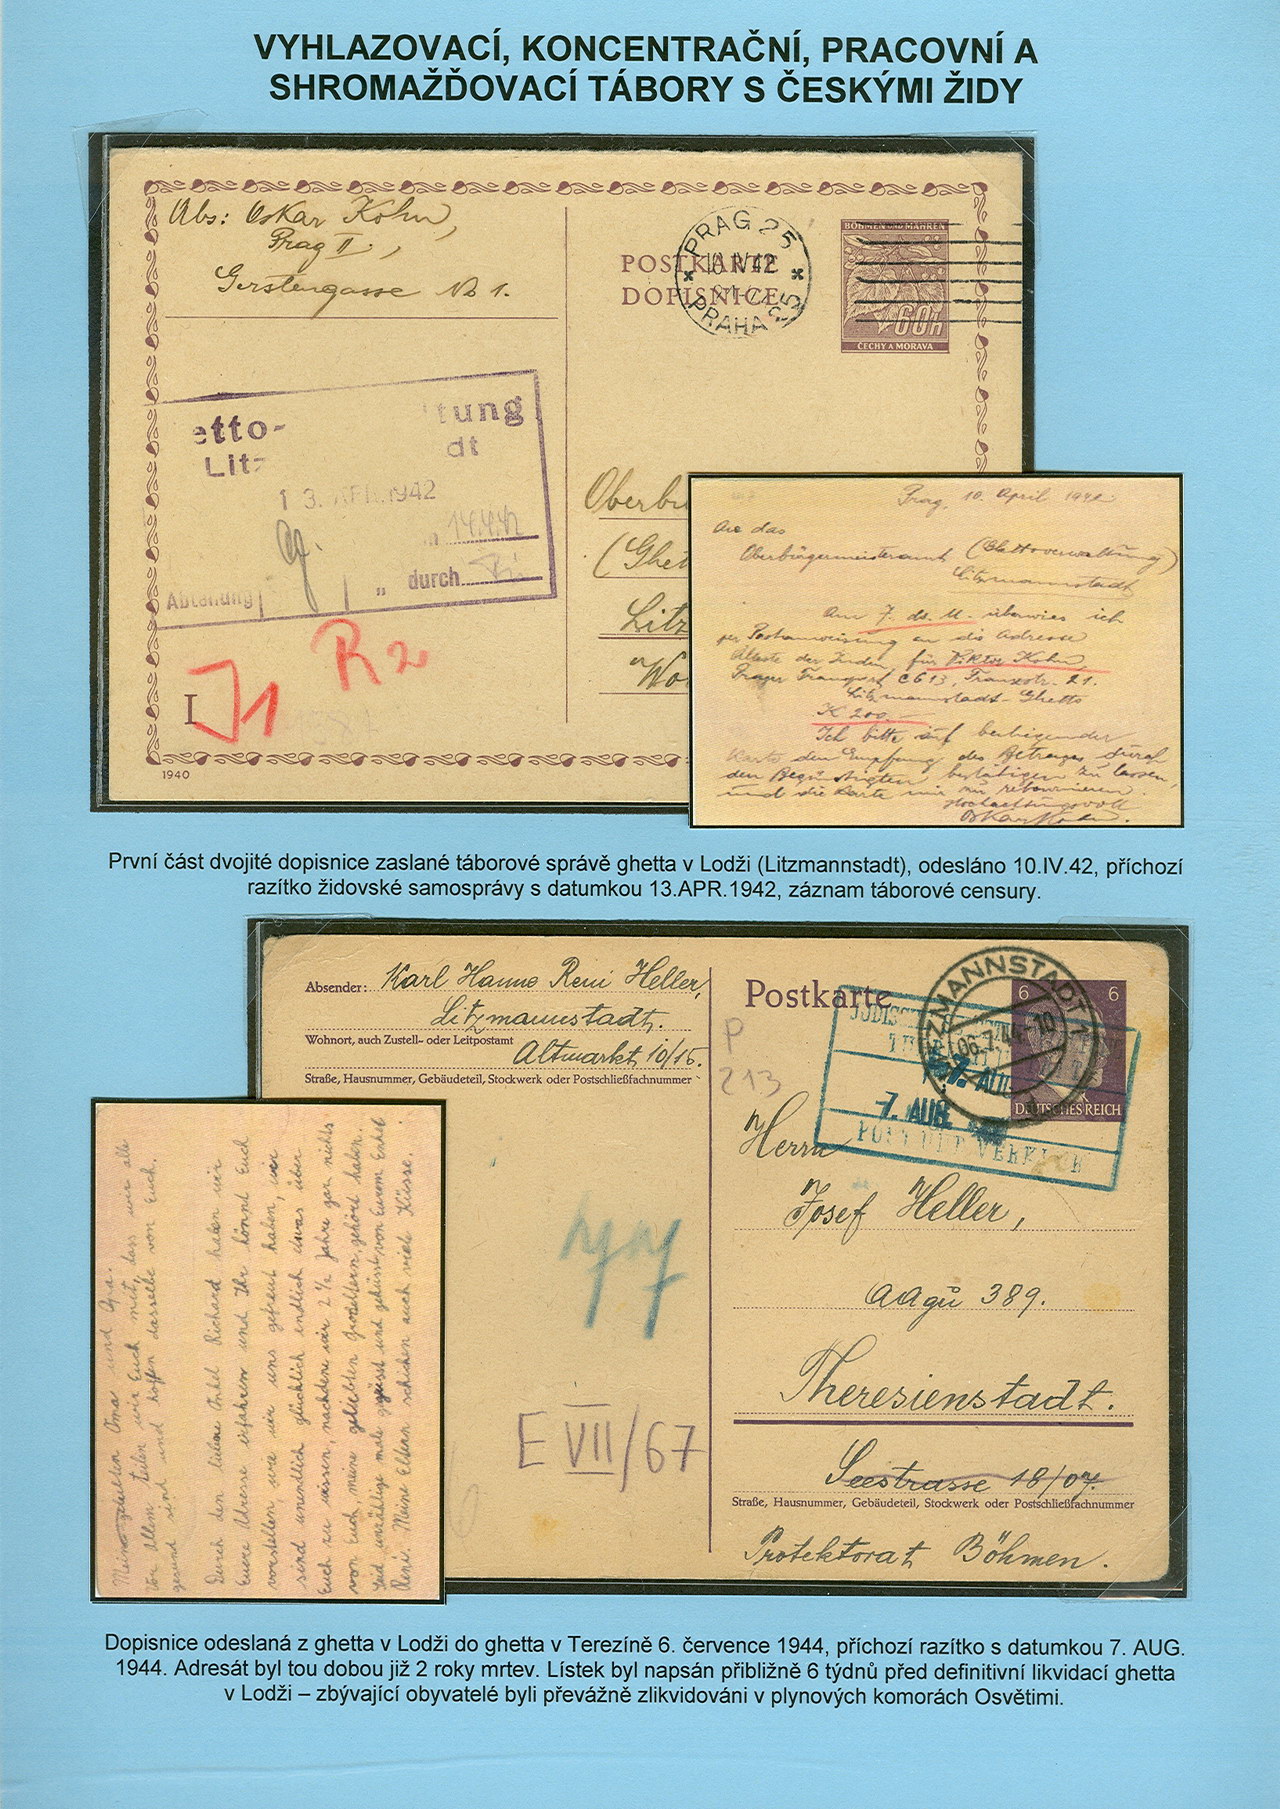 VYHLAZOVACÍ, KONCENTRAČNÍ, PRACOVNÍ A
SHROMAŽĎOVACÍ TÁBORY S ČESKÝMI ŽIDY
Abs: Oskar Kohn,
Prag II.,
Gerstengasse No 1.
POSTKARTE
DOPISNICE
PRAG 25
10.IV.42
PRAHA 25
BÖHMEN UND MÄHREN
60H
ČECHY A MORAVA
etto- tung
Litz dt
13. APR. 1942
14.4.42
Abteilung " durch
J1
R2
I
1940
Oberbü
(Ghet
Litz
Prag, 10. April 1942
An das
Oberbürgermeisteramt (Ghettoverwaltung)
Litzmannstadt
Am 7. ds. M. überwies ich
per Postanweisung an die Adresse
Älteste der Juden für Viktor Kohn,
Prager Transport C 613, Franzstr. 21.
Litzmannstadt-Ghetto
K 200.—
Ich bitte auf beiliegender
Karte den Empfang des Betrages durch
den Begünstigten bestätigen zu lassen,
und die Karte mir zu retournieren.
Hochachtungsvoll
Oskar Kohn.
První část dvojité dopisnice zaslané táborové správě ghetta v Lodži (Litzmannstadt), odesláno 10.IV.42, příchozí
razítko židovské samosprávy s datumkou 13.APR.1942, záznam táborové censury.
Absender: Karl Hanno Reni Heller,
Litzmannstadt.
Wohnort, auch Zustell- oder Leitpostamt
Altmarkt 10/15.
Straße, Hausnummer, Gebäudeteil, Stockwerk oder Postschließfachnummer
Postkarte
LITZMANNSTADT 1
06.7.44-10
6 6
DEUTSCHES REICH
7. AUG.
7. AUG.
POST U. VERKEHR
P
213
Herrn
Josef Heller,
AAgü 389.
Theresienstadt.
Seestrasse 18/07.
Straße, Hausnummer, Gebäudeteil, Stockwerk oder Postschließfachnummer
Protektorat Böhmen.
E VII/67
Meine geliebten Oma und Opa.
Vor allem teilen wir Euch mit, dass wir alle
gesund sind und hoffen dasselbe von Euch.
Durch den lieben Onkel Richard haben wir
Euere Adresse erfahren und Ihr könnt Euch
vorstellen, wie wir uns gefreut haben, wir
sind unendlich glücklich endlich etwas über
Euch zu wissen, nachdem wir 2 ½ Jahre gar nichts
von Euch, meine geliebten Großeltern, gehört haben.
Seid unzählige male gegrüsst und geküsst von Eurem Enkel
Reni. Meine Eltern schicken auch viele Küsse.
Dopisnice odeslaná z ghetta v Lodži do ghetta v Terezíně 6. července 1944, příchozí razítko s datumkou 7. AUG.
1944. Adresát byl tou dobou již 2 roky mrtev. Lístek byl napsán přibližně 6 týdnů před definitivní likvidací ghetta
v Lodži – zbývající obyvatelé byli převážně zlikvidováni v plynových komorách Osvětimi.